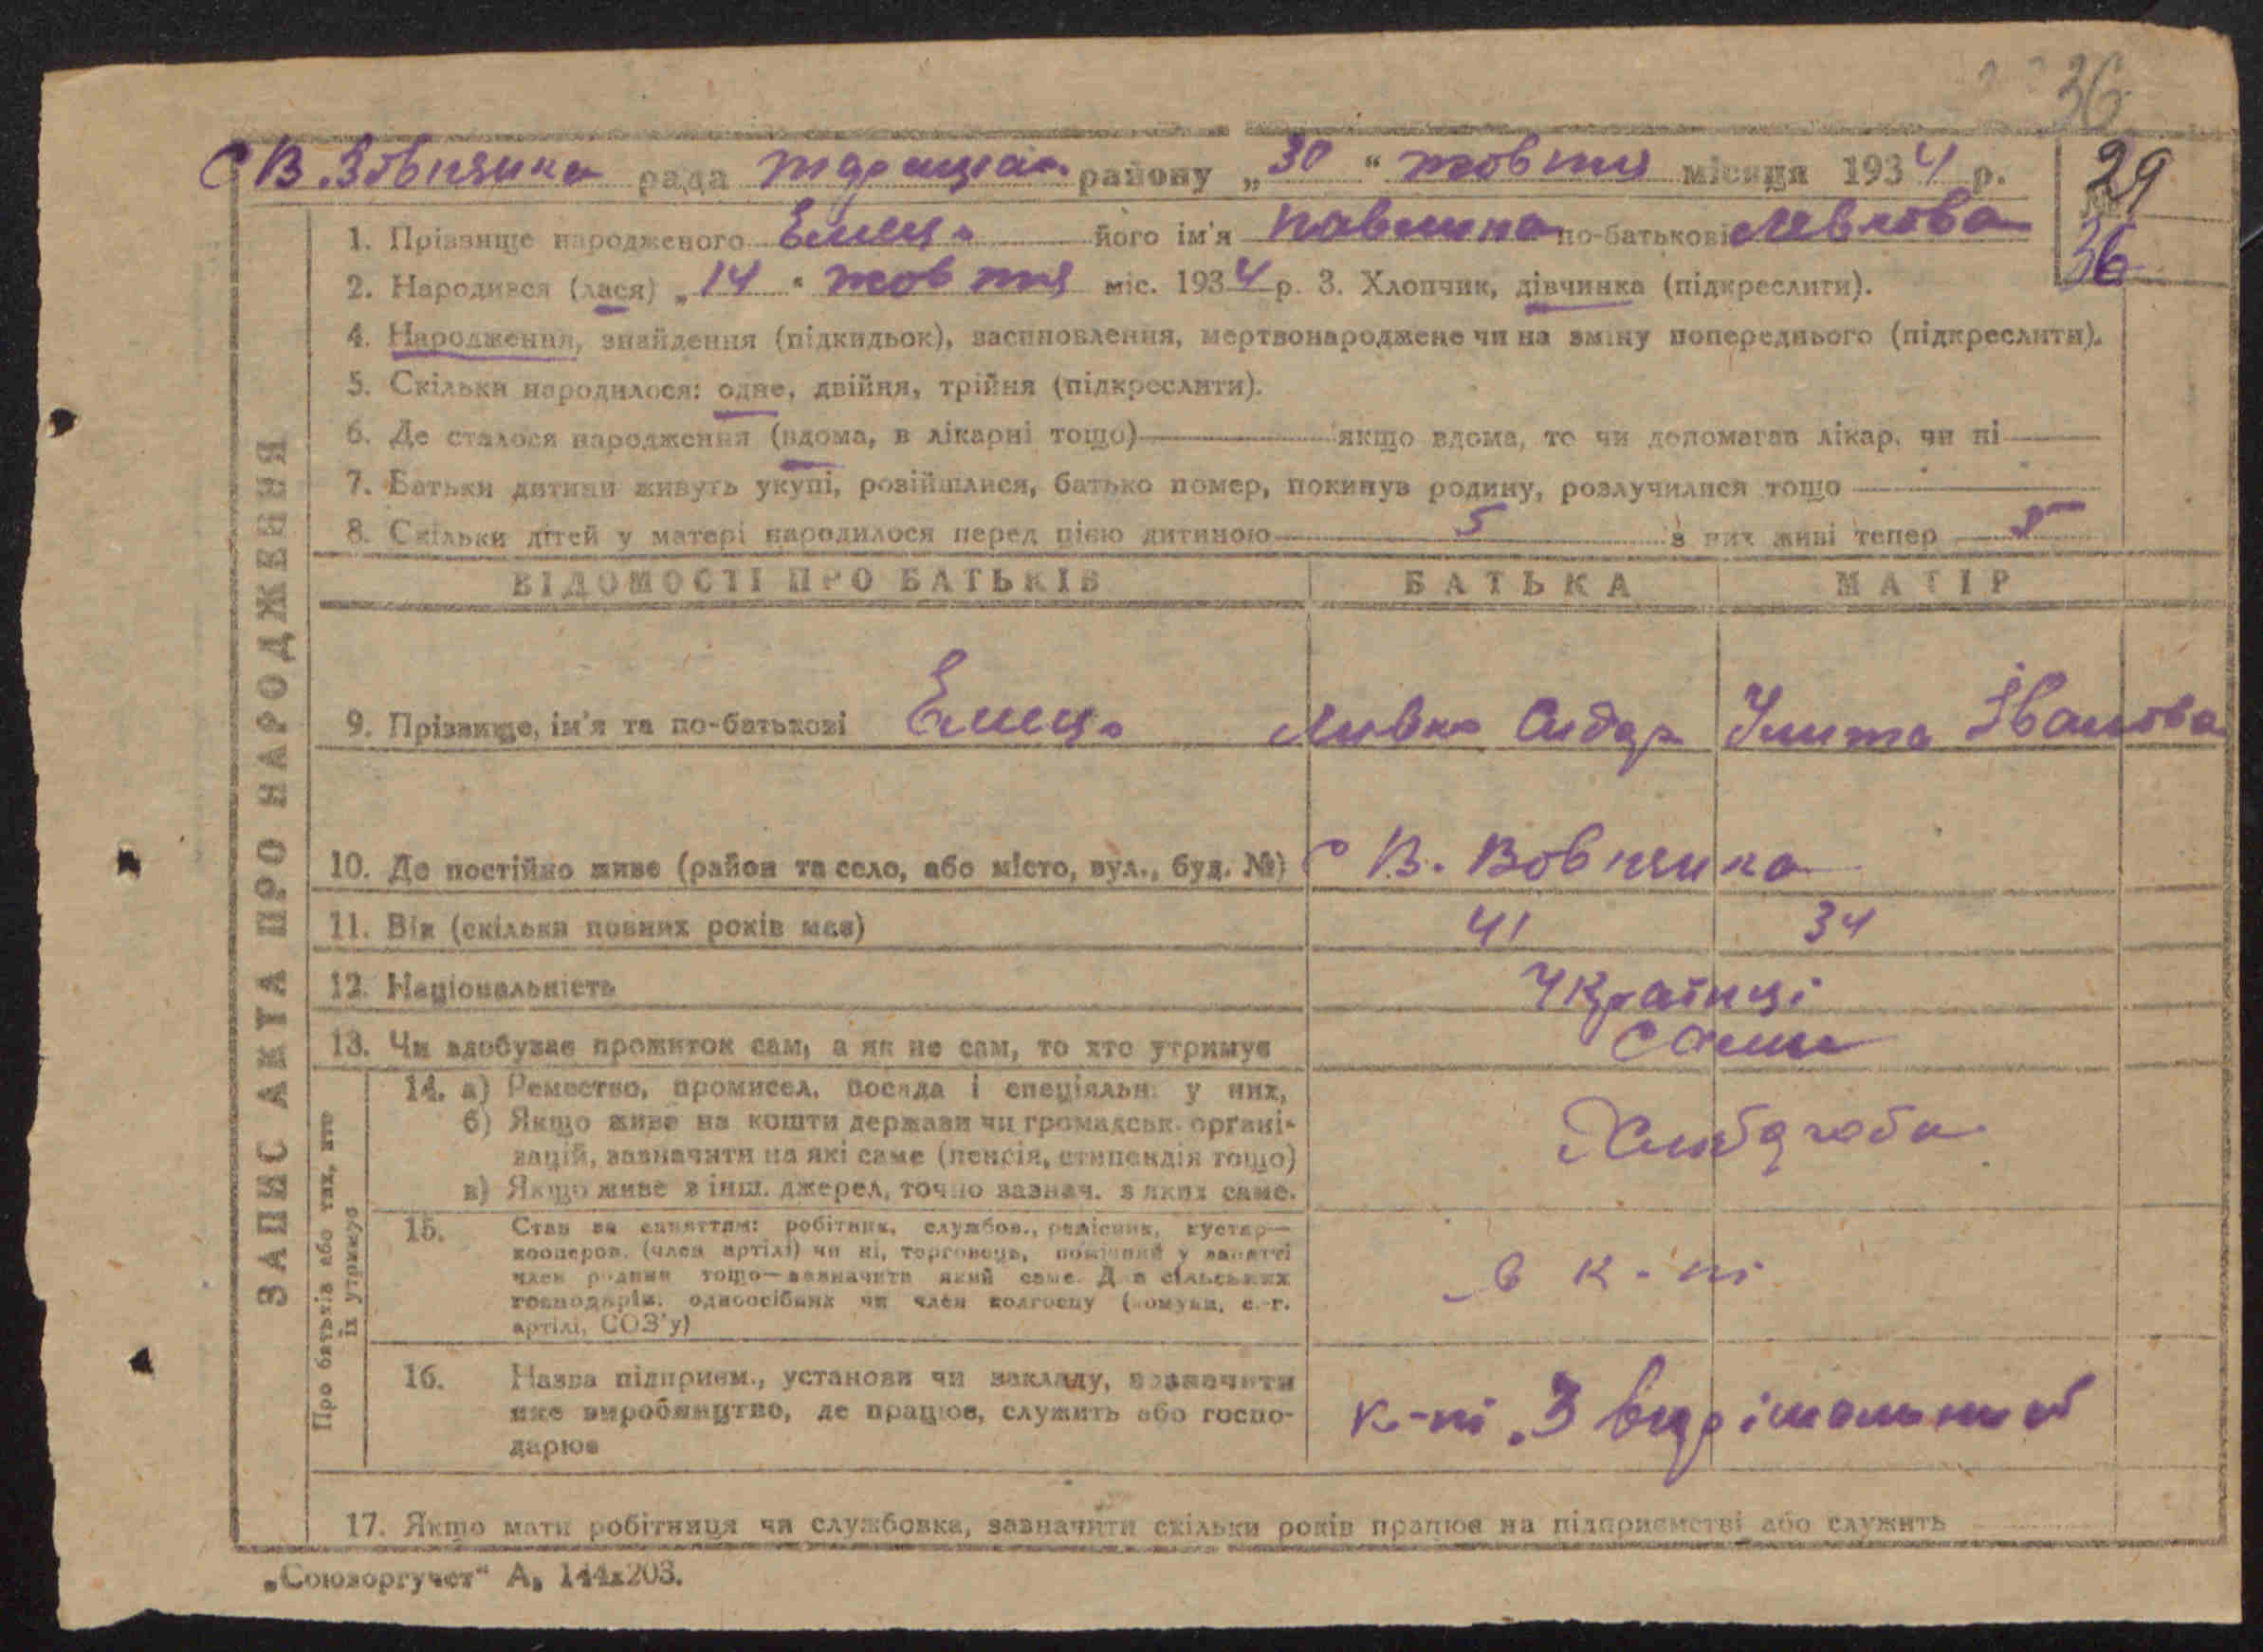 36
С В. Вовнянка рада району „30“ жовтня місяця 1934 р.
29
36
1. Прізвище народженого Емець його ім'я Павлина по-батькові Левкова
2. Народився (лася) „14“ жовтня міс. 1934 р. 3. Хлопчик, дівчинка (підкреслити).
4. Народження, знайдення (підкидьок), засиновлення, мертвонароджене чи на зміну попереднього (підкреслити).
5. Скільки народилося: одне, двійня, трійня (підкреслити).
6. Де сталося народження (вдома, в лікарні тощо) якщо вдома, то чи допомагав лікар, чи ні
7. Батьки дитини живуть укупі, розійшлися, батько помер, покинув родину, розлучилися тощо
8. Скільки дітей у матері народилося перед цією дитиною 5 з них живі тепер 5
ВІДОМОСТІ ПРО БАТЬКІВ БАТЬКА МАТІР
9. Прізвище, ім'я та по-батькові Емець Сидор Іванова
10. Де постійно живе (район та село, або місто, вул., буд. №) с В. Вовнянка
11. Вік (скільки повних років має) 41 34
12. Національність Українці
13. Чи здобуває прожиток сам, а як не сам, то хто утримує сами
14. а) Ремество, промисел, посада і спеціяльн. у них,
б) Якщо живе на кошти держави чи громадськ. органі-
зацій, зазначити на які саме (пенсія, стипендія тощо)
в) Якщо живе з інш. джерел, точно зазнач. з яких саме.
Хлібороби
15. Стан за заняттям: робітник, службов., ремісник, кустар—
кооперов. (член артілі) чи ні, торговець, помічний у занятті
член родини тощо—зазначити який саме. Для сільських
господарів: одноосібник чи член колгоспу (комуни, с.-г.
артілі, СОЗ'у)
в к-пі
16. Назва підприєм., установи чи закладу, зазначити
яке виробництво, де працює, служить або госпо-
дарює
к-пі „3 вирішальний
17. Якщо мати робітниця чи службовка, зазначити скільки років працює на підприємстві або служить
ЗАПИС АКТА ПРО НАРОДЖЕННЯ
Про батьків або тих, хто
їх утримує
„Союзоргучет“ А₅ 144х203.